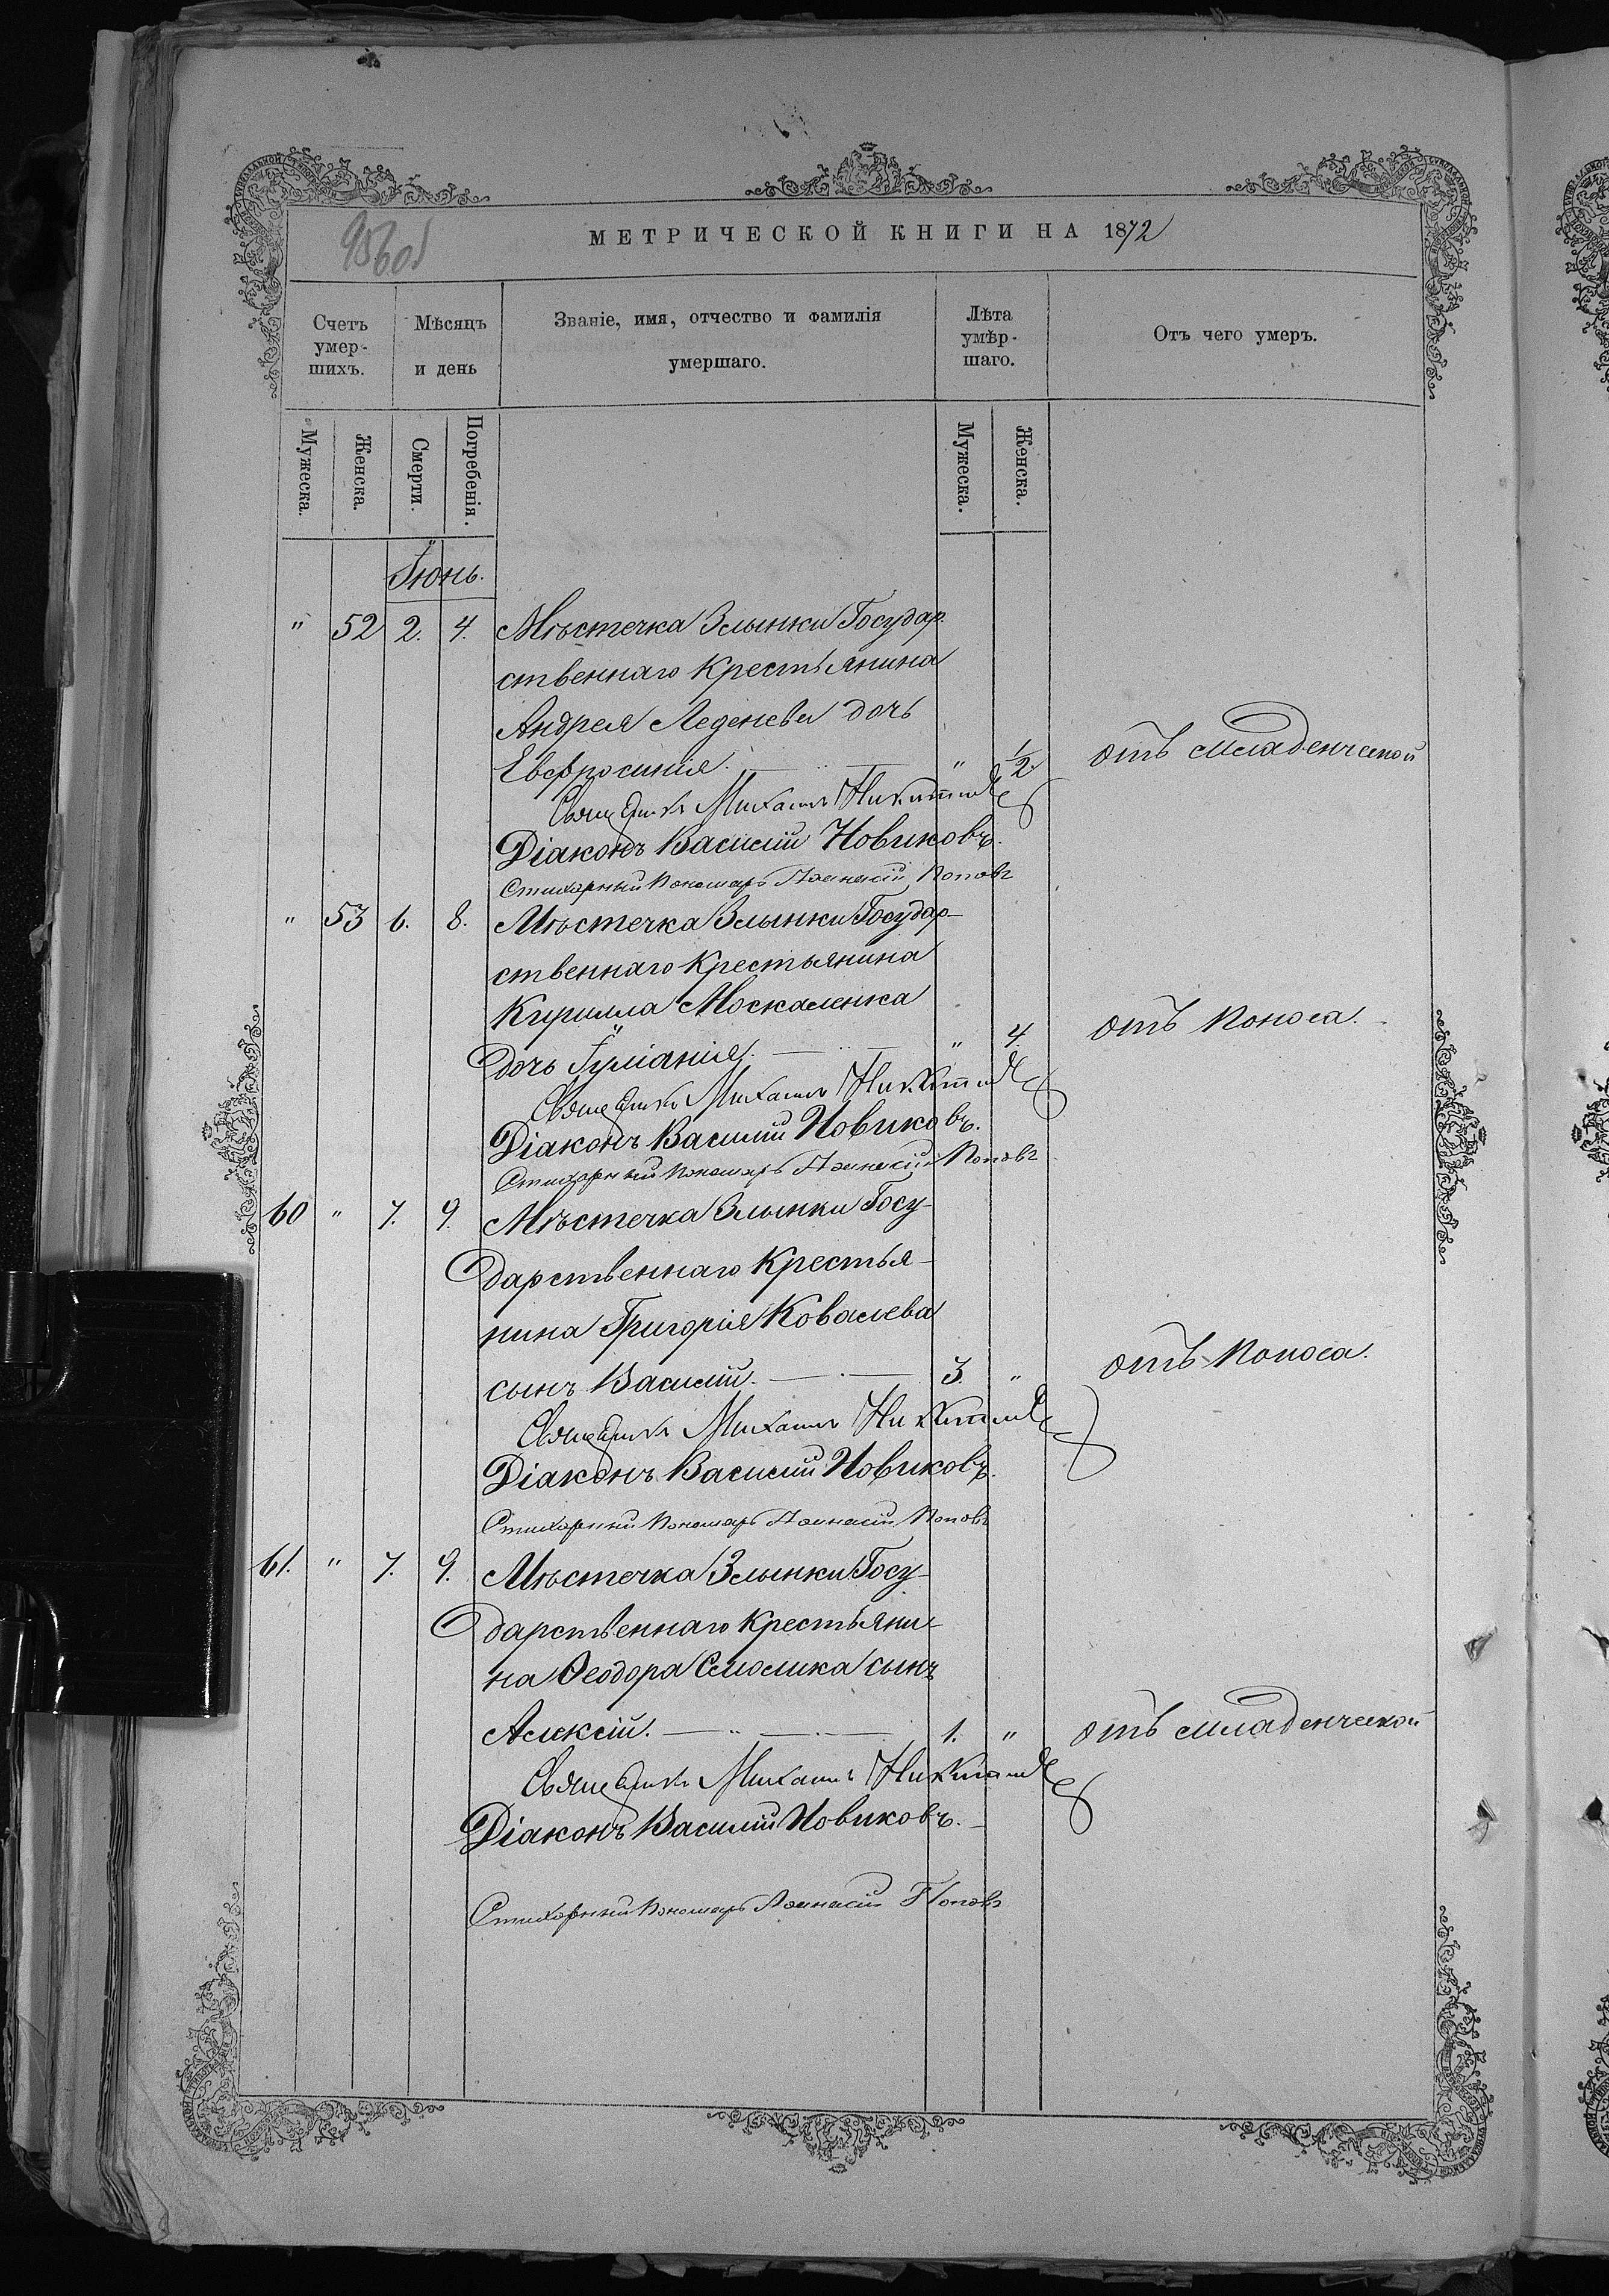 956 об
МЕТРИЧЕСКОЙ КНИГИ НА 1872
Счетъ умер-шихъ.
Мѣсяцъ и день
Званіе, имя, отчество и фамилія умершаго.
Лѣта умѣр-шаго.
Отъ чего умеръ.
Мужеска.
Женска.
Смерти.
Погребенія.
Мужеска.
Женска.
Іюнь.
" 52 2. 4. Мѣстечка Злынки Государ-
ственнаго Крестьянина
Андрея Леденева дочь
Евфросинія. " 1/2. отъ младенческой
Священникъ Михаилъ
Діаконъ Василій Новиковъ.
Стихарный Пономарь Афанасій Поповъ
" 53 6. 8. Мѣстечка Злынки Государ-
ственнаго Крестьянина
Кирилла Москаленка
дочь Іуліанія. " 4. отъ поноса.
Священникъ Михаилъ
Діаконъ Василій Новиковъ.
Стихарный Пономарь Афанасій Поповъ
60 " 7. 9. Мѣстечка Злынки Госу-
дарственнаго Крестья-
нина Григорія Ковалева
сынъ Василій. 3. " отъ поноса.
Священникъ Михаилъ
Діаконъ Василій Новиковъ.
Стихарный Пономарь Афанасій Поповъ
61. " 7. 9. Мѣстечка Злынки Госу-
дарственнаго Крестьяни-
на Ѳеодора Смолика сынъ
Алексій. 1. " отъ младенческой
Священникъ Михаилъ
Діаконъ Василій Новиковъ.
Стихарный Пономарь Афанасій Поповъ